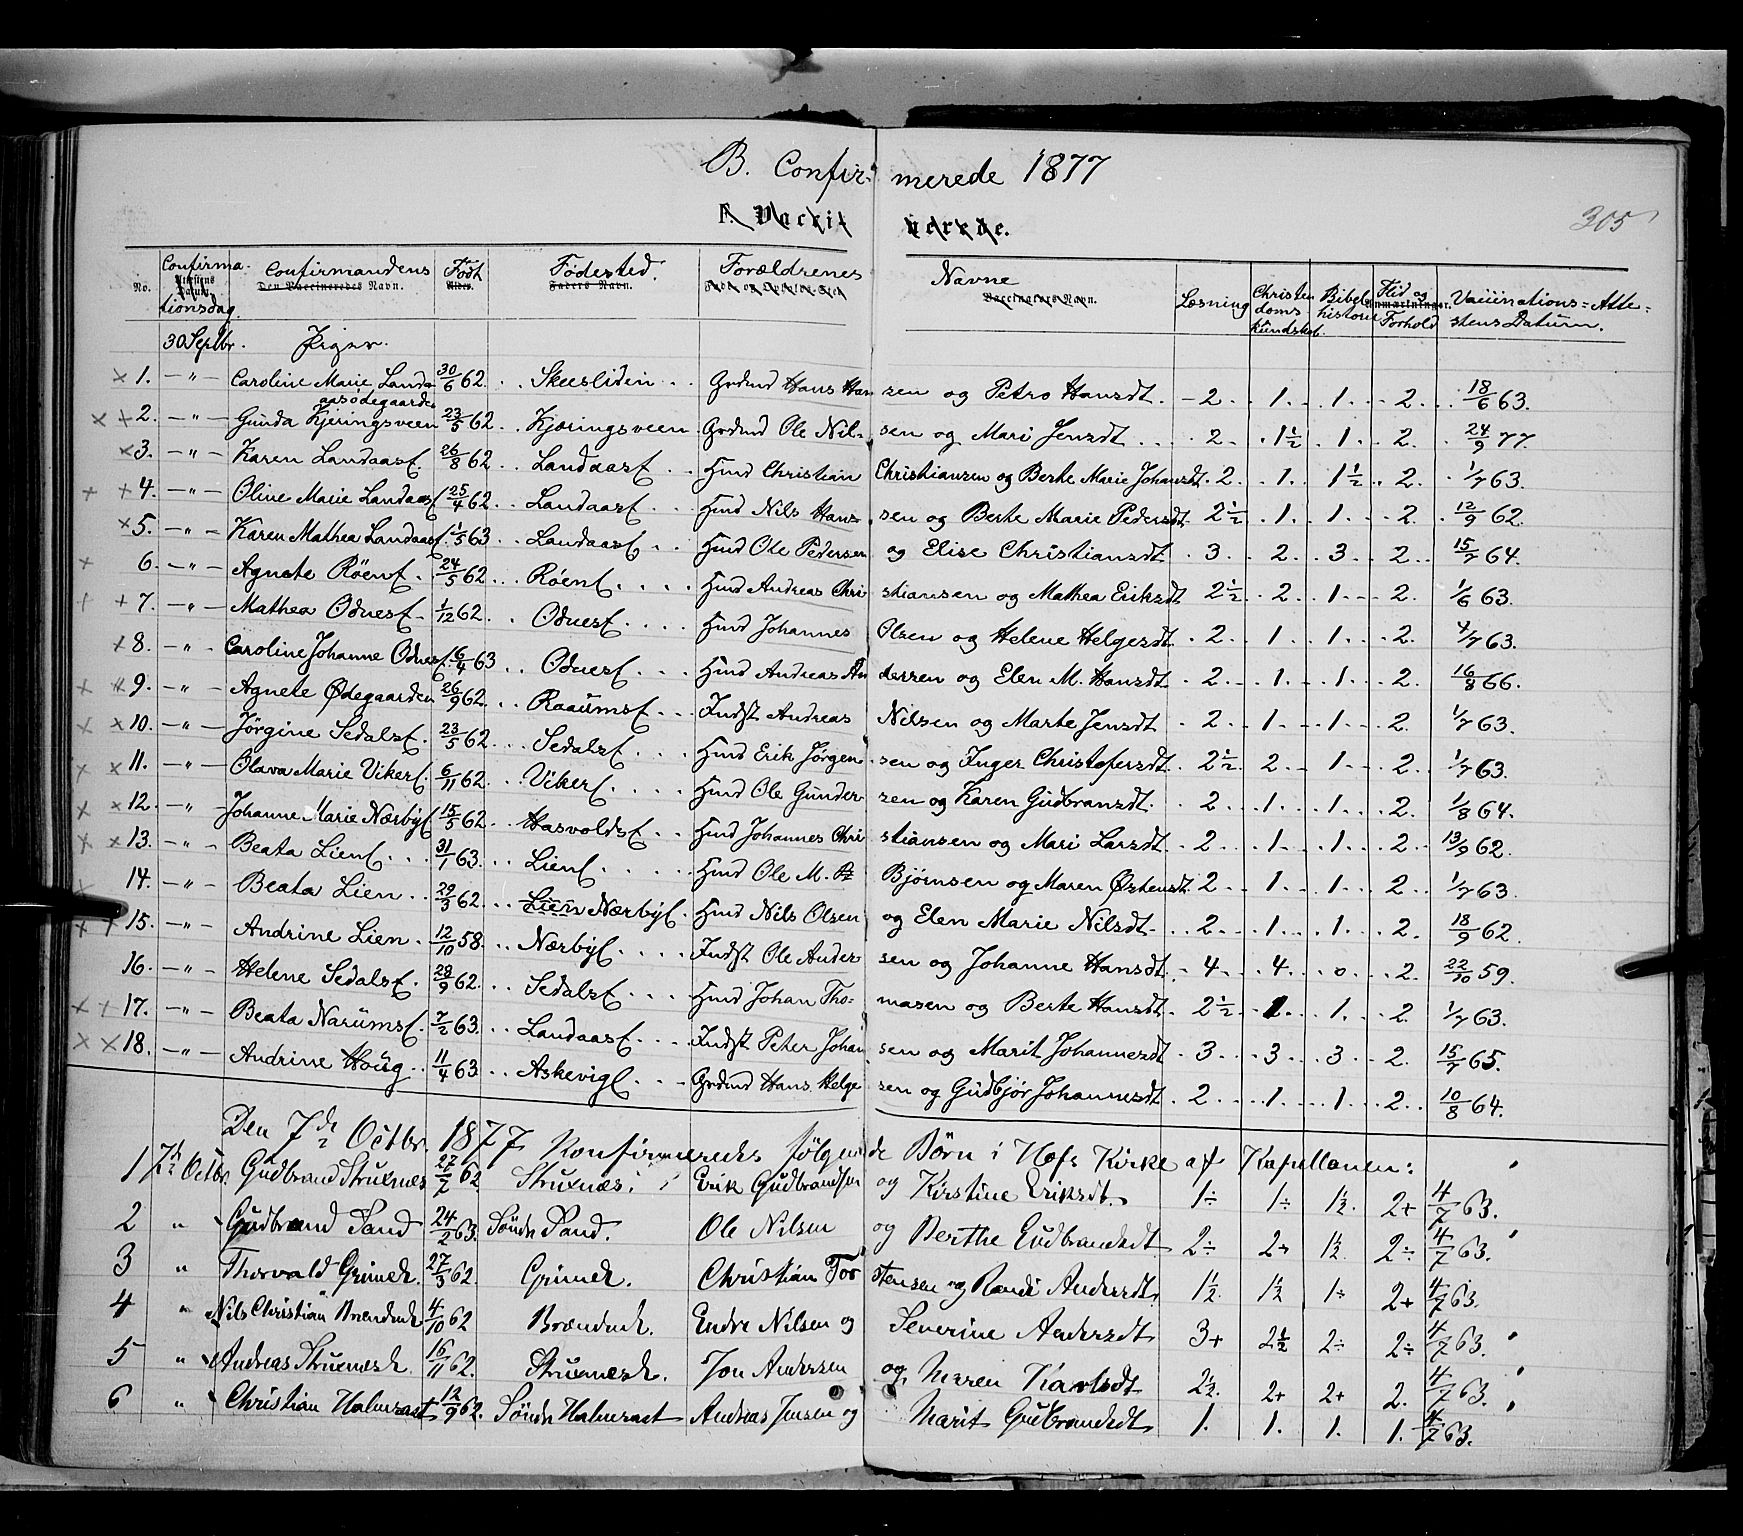 B. Confir- merede 1877
F. Vacci- nerede.
305
No. Confirmationsdag. Attestens Datum. Confirmandens Den Vaccineredes Navn. Født Alder. Fødested. Faders Navn. Forældrenes Navne Vaccinators Navn. Læsning Christendomskundskab. Bibelhistorie Flid og Forhold Anmærkninger. Vaccinations-Attestens Datum.
30 Septbr. Piger.
1. —"— Caroline Marie Landaasødegaarden 30/6 62. Skeesliden Grdmd Hans Hansen og Petro Hansdt. 2 1. 1. 2. 18/6 63.
2. —"— Gunda Kjeringsveen 23/5 62 Kjæringsveen Grdmd Ole Nilsen og Mari Jensdt 2 1½ 1. 2. 24/9 77.
3. —"— Karen Landaase. 26/8 62 Landaase Hmd Christian Christiansen og Berte Marie Johansdt 2. 1. 1½ 2. 1/7 63.
4. —"— Oline Marie Landaase 25/4 62 Landaase Hmd Nils Hansen og Berte Marie Pedersdt 2½ 1. 1. 2. 12/9 62.
5. —"— Karen Mathea Landaase 1/5 63 Landaase Hmd Ole Pedersen og Elise Christiansdt 3. 2. 3. 2. 15/7 64.
6. —"— Agnete Röene. 24/5 62 Röene Hmd Andreas Christiansen og Mathea Eriksdt 2½ 2. 1. 2. 1/6 63.
7. —"— Mathea Odnese 1/12 62 Odnese Hmd Johannes Olsen og Helene Helgesdt 2. 1. 1. 2. 4/7 63.
8. —"— Caroline Johanne Odnese 16/4 63 Odnese Hmd Andreas Andersen og Elen M. Hansdt 2. 1. 1. 2. 16/8 66.
9. —"— Agnete Ødegaarden 26/9 62 Raaumse Indst Andreas Nilsen og Marte Jensdt 2. 1. 1. 2. 1/7 63.
10. —"— Jörgine Sedalse. 23/5 62 Sedalse Hmd Erik Jørgensen og Inger Christofersdt. 2½ 2. 1. 2. 1/7 63.
11. —"— Olava Marie Vikere. 6/11 62 Vikere Hmd Ole Gundersen og Karen Gudbransdt. 2. 1. 1. 2. 1/8 64.
12. —"— Johanne Marie Nærbye 15/5 62 Hasvoldse Hmd Johannes Christiansen og Mari Larsdt 2. 1. 1. 2. 13/9 62.
13. —"— Beata Liene 31/1 63. Liene Hmd Ole M. Bjørnsen og Maren Østensdt 2. 1. 1. 2. 1/7 63.
14. —"— Beata Lien 29/3 62 Lien Nærbye. Hmd Nils Olsen og Elen Marie Nilsdt 2. 1. 1. 2. 18/9 62.
15. —"— Andrine Lien. 12/10 58. Nærbye Indst Ole Andersen og Johanne Hansdt. 4. 4. 0. 2. 22/10 59.
16. —"— Helene Sedalse. 28/9 62. Sedalse Hmd Johan Thomasen og Berte Hansdt 2½ 1. 1. 2. 1/7 63.
17. —"— Beata Narumse. 7/2 63. Landaase Indst Peter Johansen og Marit Johannesdt 3. 3. 3. 2. 15/7 65.
18. —"— Andrine Houg 11/4 63 Askevige Grdmd Hans Helgesen og Gudbjør Johannesdt 2. 1. 1. 2. 10/8 64.
Den 7de Octbr. 1877 konfirmeredes følgende Börn i Hofs Kirke af Kapellanen:
1 7de Octbr. Gudbrand Struxnes 27/7 62. Struxnæs Erik Gudbrandsen og Kirstine Eriksdt. 1÷ 1÷ 1½. 2+ 4/7 63.
2 " Gudbrand Sand 24/2 63. Söndr Sand. Ole Nilsen og Berthe Gudbrandsdt 2÷ 2÷ 1½. 2÷ 4/7 63.
3 " Thorvald Grimsh. 27/3 62. Grimsh. Christian Torstensen og Randi Andersdt. 1½. 1½ 1÷ 2+ 4/7 63.
4 " Nils Christian Brændenh 4/10 62 Brændenh. Endre Nilsen og Severine Andersdt 3+ 2½ 2÷ 2÷ 4/7 63.
5 " Andreas Struxnesh. 16/11 62. Struxnesh. Jon Andersen og Maren Karlsdt 2½. 2+ 2+ 2. 4/7 63.
6 " Christian Halmrast 12/9 62. Söndr Halmrast Andreas Jensen og Marit Gudbrandsdt 1. 1. 1. 1. 4/7 63.